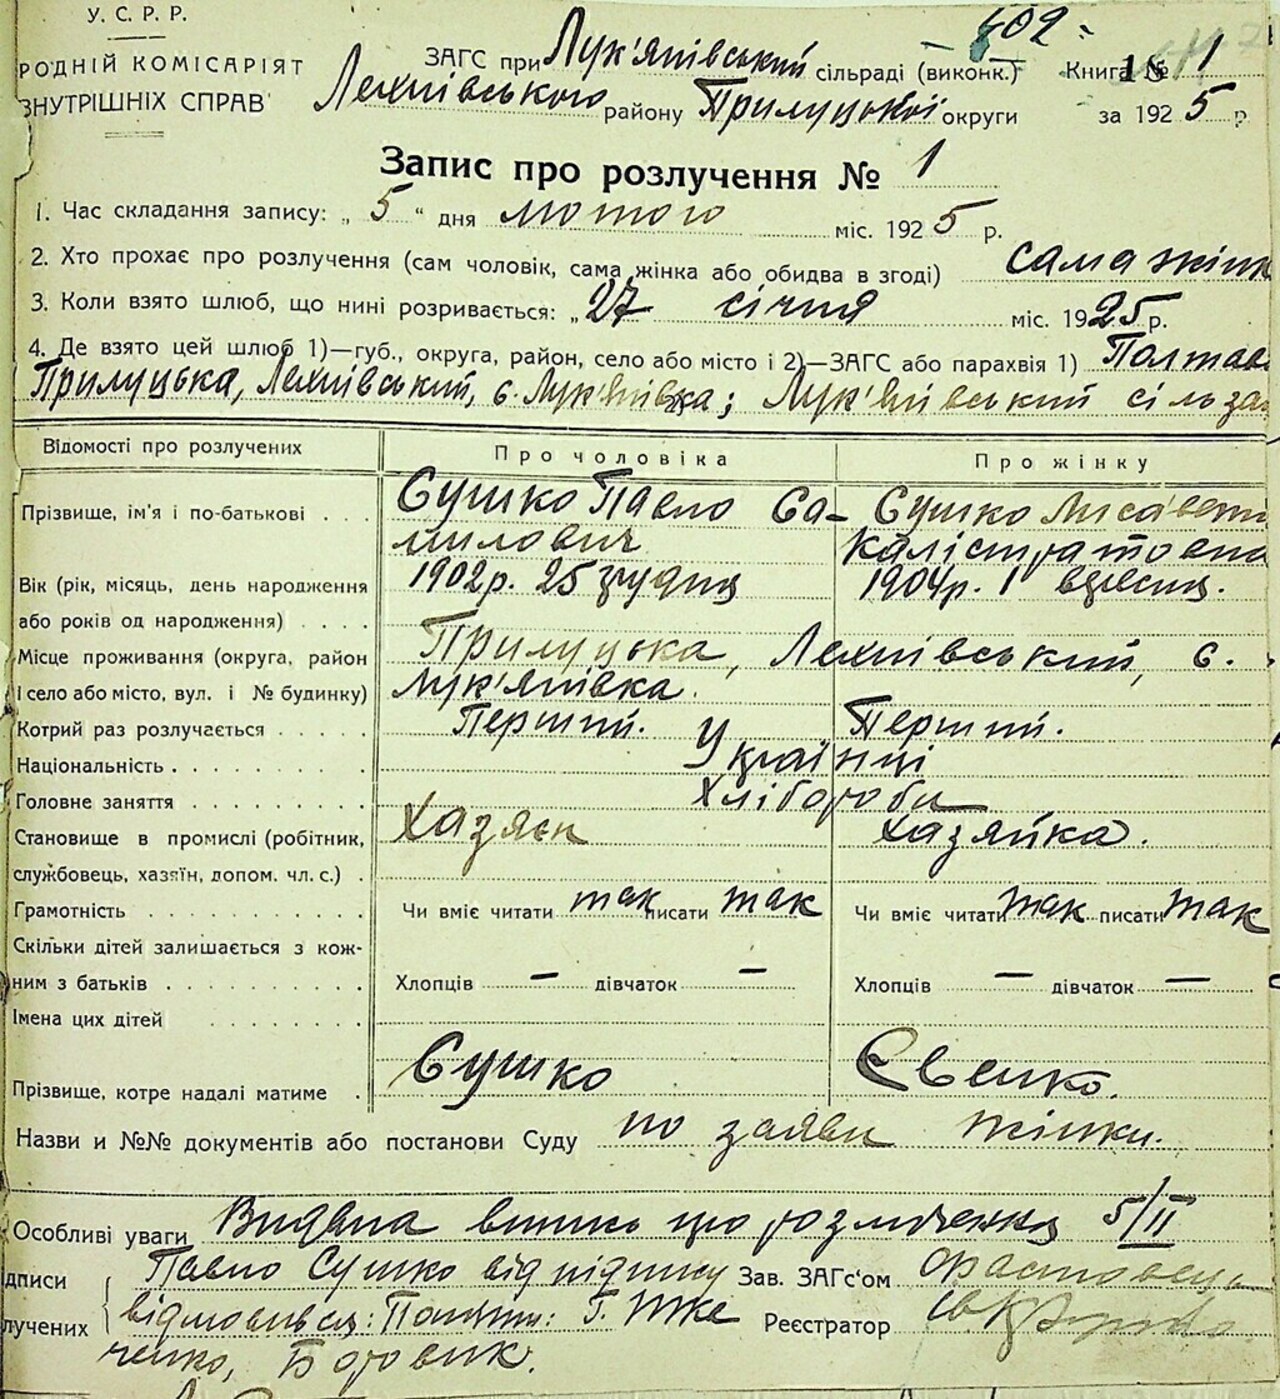 У. С. Р. Р.
402
РОДНІЙ КОМІСАРІЯТ
ЗАГС при Лук'янівський сільраді (виконк.) Книга № 1
ВНУТРІШНІХ СПРАВ
Лехнівського району Прилуцької округи за 1925 р.
Запис про розлучення № 1
1. Час складання запису: „5“ дня лютого міс. 1925 р.
2. Хто прохає про розлучення (сам чоловік, сама жінка або обидва в згоді) сама жінк
3. Коли взято шлюб, що нині розривається: „27 січня міс. 1925 р.
4. Де взято цей шлюб 1)—губ., округа, район, село або місто і 2)—ЗАГС або парахвія 1) Полтав
Прилуцька, Лехнівський, с. Лук'янівка; Лук'янівський сільза
Відомості про розлучених Про чоловіка Про жінку
Прізвище, ім'я і по-батькові . . . Сушко Павло Са- Сушко Лисавет
милович Калістратовна
Вік (рік, місяць, день народження 1902р. 25 грудня 1904р. 1 вересня.
або років од народження) . . . .
Місце проживання (округа, район Прилуцька, Лехнівський, с.
і село або місто, вул. і № будинку) Лук'янівка.
Котрий раз розлучається . . . . . Перший. Перший.
Національність . . . . . . . . . Українці
Головне заняття . . . . . . . . . Хлібороби
Становище в промислі (робітник, Хазяєн Хазяйка.
службовець, хазяїн, допом. чл. с.) .
Грамотність . . . . . . . . . . . Чи вміє читати так писати так Чи вміє читати так писати так
Скільки дітей залишається з кож-
ним з батьків . . . . . . . . . . Хлопців — дівчаток — Хлопців — дівчаток —
Імена цих дітей . . . . . . . .
Прізвище, котре надалі матиме . Сушко Євенко.
Назви и №№ документів або постанови Суду по заяві жінки.
Особливі уваги Видана випись про розлучення 5/II
дписи Павло Сушко від підпису Зав. ЗАГс'ом
лучених відмовився: Понят: Г. Тка Реєстратор
ченко, Боровик.